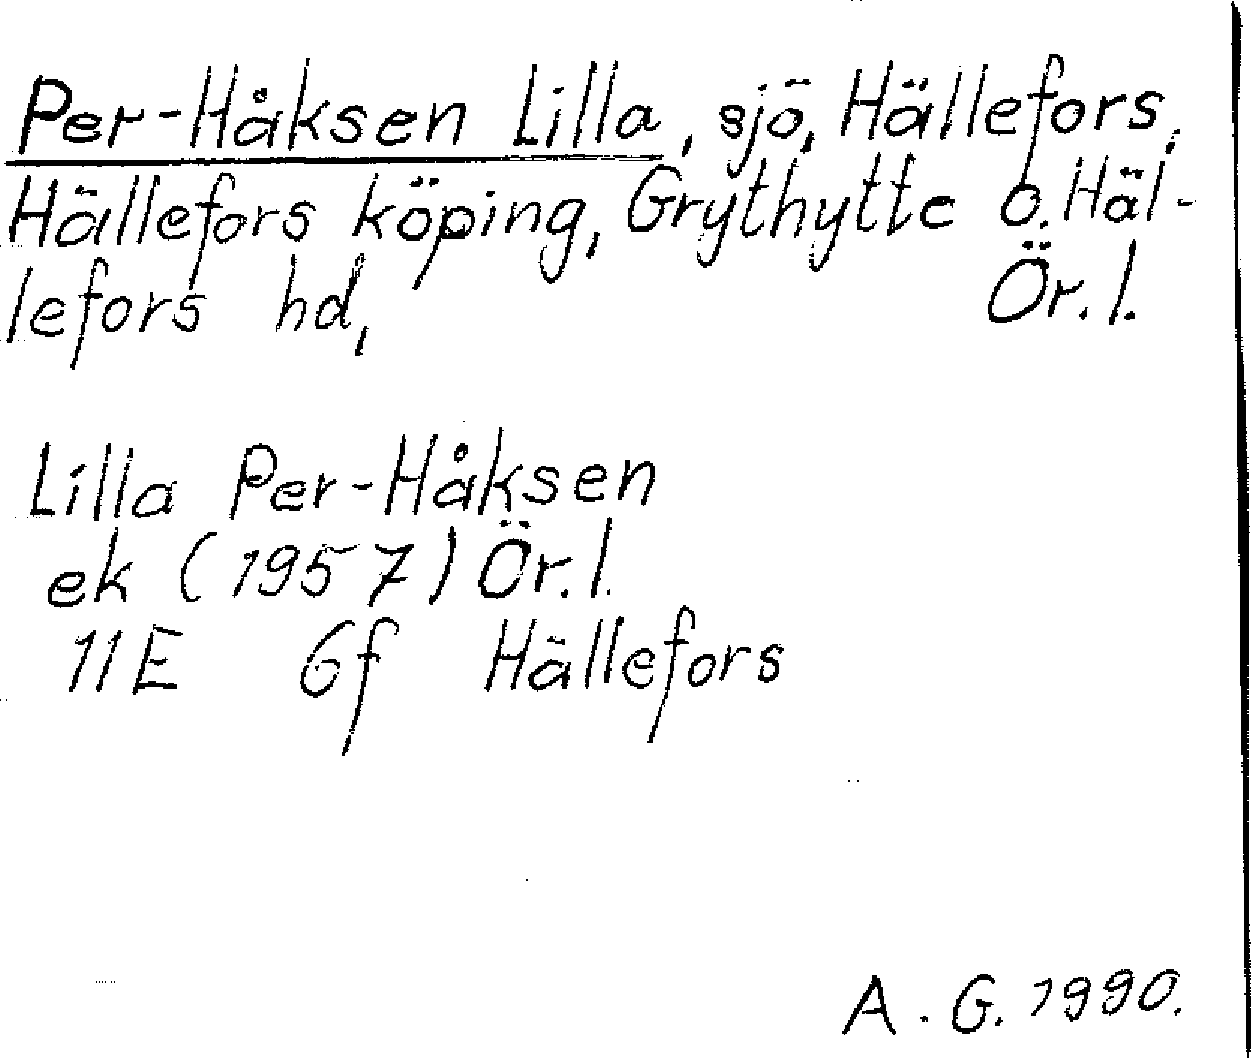 Per-Håksen Lilla, sjö, Hällefors,
Hällefors köping, Grythytte o. Häl-
lefors hd, Ör. l.
Lilla Per-Håksen
ek (1957) Ör. l.
11E 6f Hällefors
A. G. 1990.